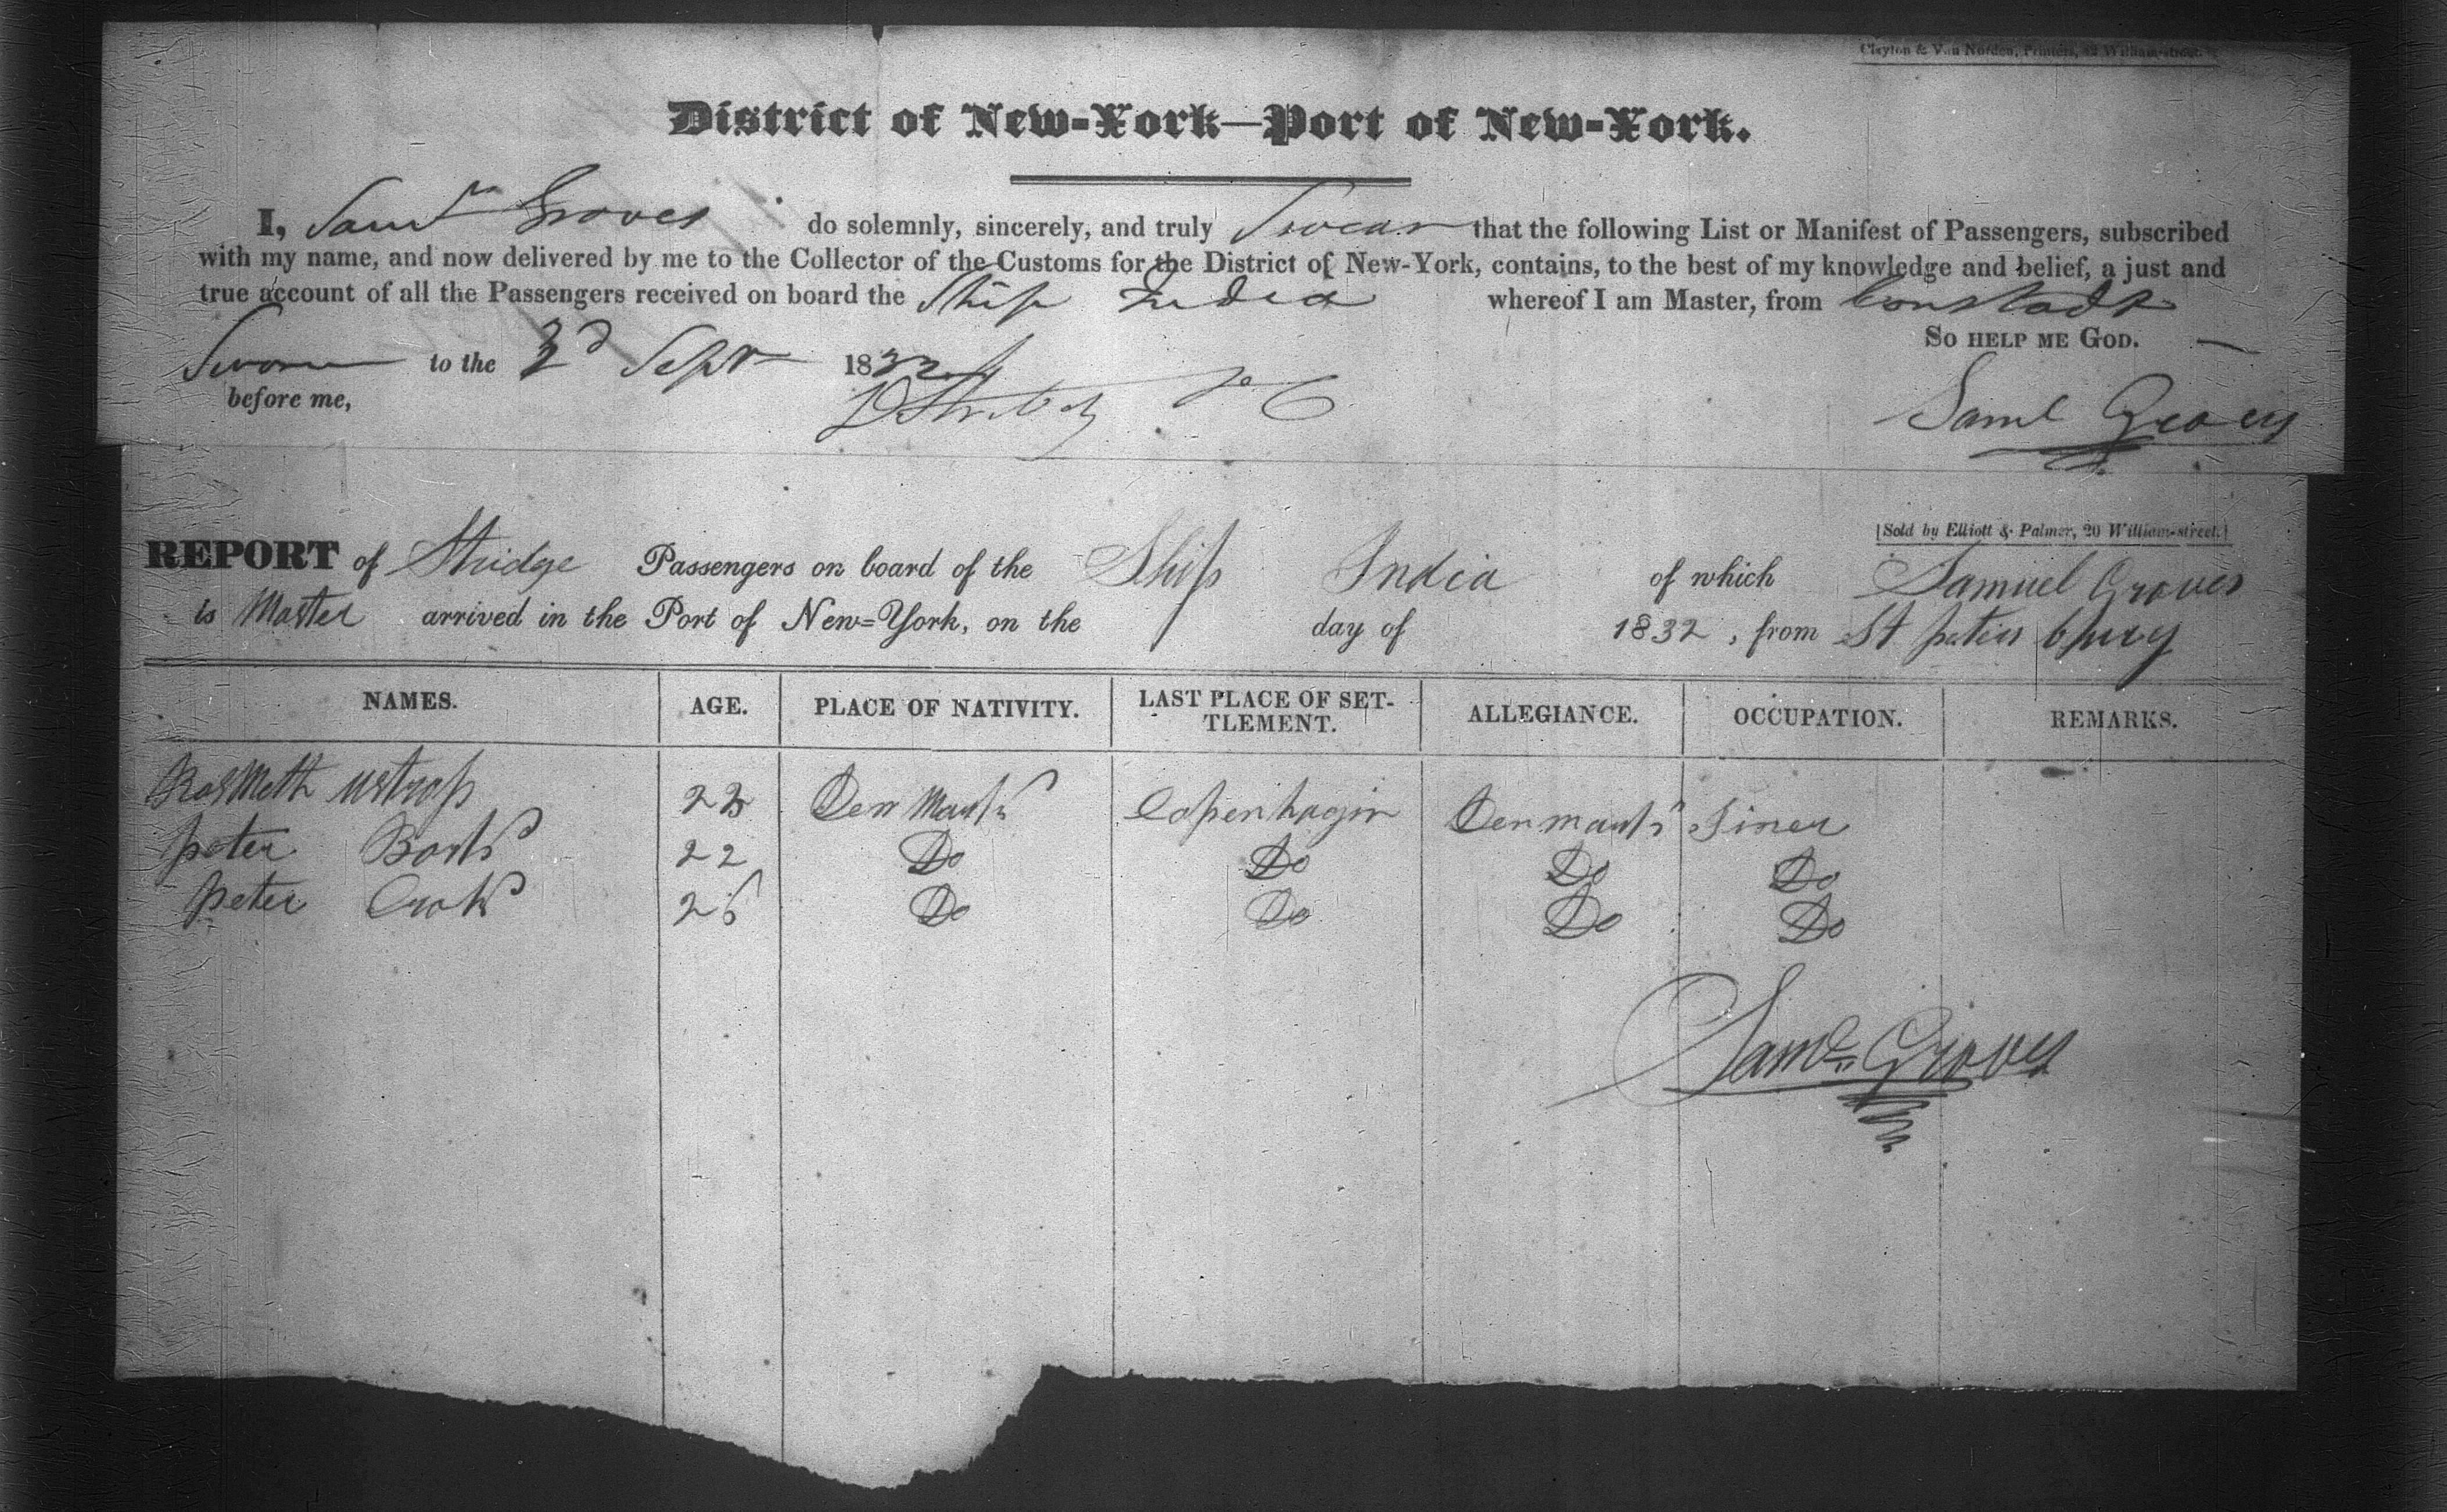 Clayton & Van Norden, Printers, 42 William-street.
District of New-York—Port of New-York.
I, Saml Groves do solemnly, sincerely, and truly Swear that the following List or Manifest of Passengers, subscribed
with my name, and now delivered by me to the Collector of the Customs for the District of New-York, contains, to the best of my knowledge and belief, a just and
true account of all the Passengers received on board the Ship India whereof I am Master, from Cronstadt
So help me God.
Sworn to the 3d Sept 1832
before me,
Saml Groves
[Sold by Elliott & Palmer, 20 William-street.]
REPORT of Passengers on board of the Ship India of which Samuel Groves
is Master arrived in the Port of New=York, on the day of 1832, from St petersburg
NAMES. AGE. PLACE OF NATIVITY. LAST PLACE OF SET-TLEMENT. ALLEGIANCE. OCCUPATION. REMARKS.
Denmark Copenhagin Denmark
peter 22 Do Do Do Do
peter 26 Do Do Do Do
Saml Groves